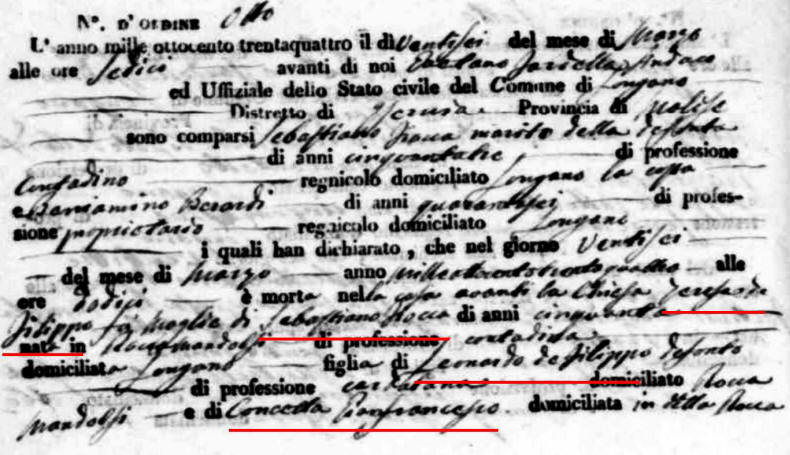 N°. D'ORDINE Otto
L'anno mille ottocento trentaquattro il dì Ventisei del mese di Marzo
alle ore Sedici avanti di noi Gaetano Sindaco
ed Uffiziale dello Stato civile del Comune di Longano
Distretto di Isernia Provincia di Molise
sono comparsi Sebastiano Rocca marito della defonta
di anni cinquantatre di professione
Contadino regnicolo domiciliato Longano la casa
e Beniamino Berardi di anni quarantasei di profes-
sione proprietario regnicolo domiciliato Longano
i quali han dichiarato, che nel giorno Ventisei
del mese di Marzo anno milleottocentotrentaquattro alle
ore Dodici è morta nella casa avanti la Chiesa Teresa de
Filippo fù Moglie di Sebastiano Rocca di anni cinquanta
nata in Roccamandolfi di professione contadina
domiciliata Longano figlia di Leonardo de Filippo defonto
di professione domiciliato Rocca
Mandolfi e di Concetta Gianfrancesco domiciliata in detta Rocca